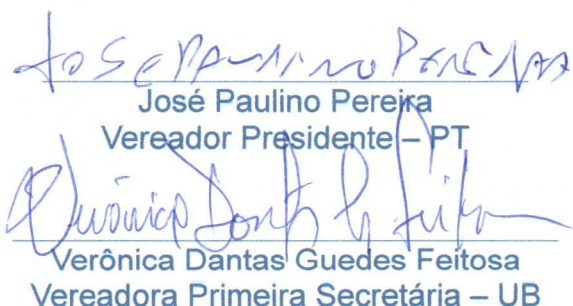 José Paulino Pereira
José Paulino Pereira
Vereador Presidente – PT
Verônica Dantas G Feitosa
Verônica Dantas Guedes Feitosa
Vereadora Primeira Secretária – UB